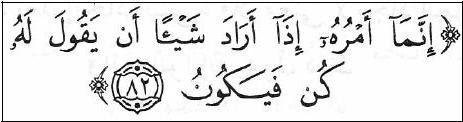 ﴿إِنَّمَآ أَمْرُهُۥٓ إِذَآ أَرَادَ شَيْـًٔا أَن يَقُولَ لَهُۥ
كُن فَيَكُونُ ٨٢﴾